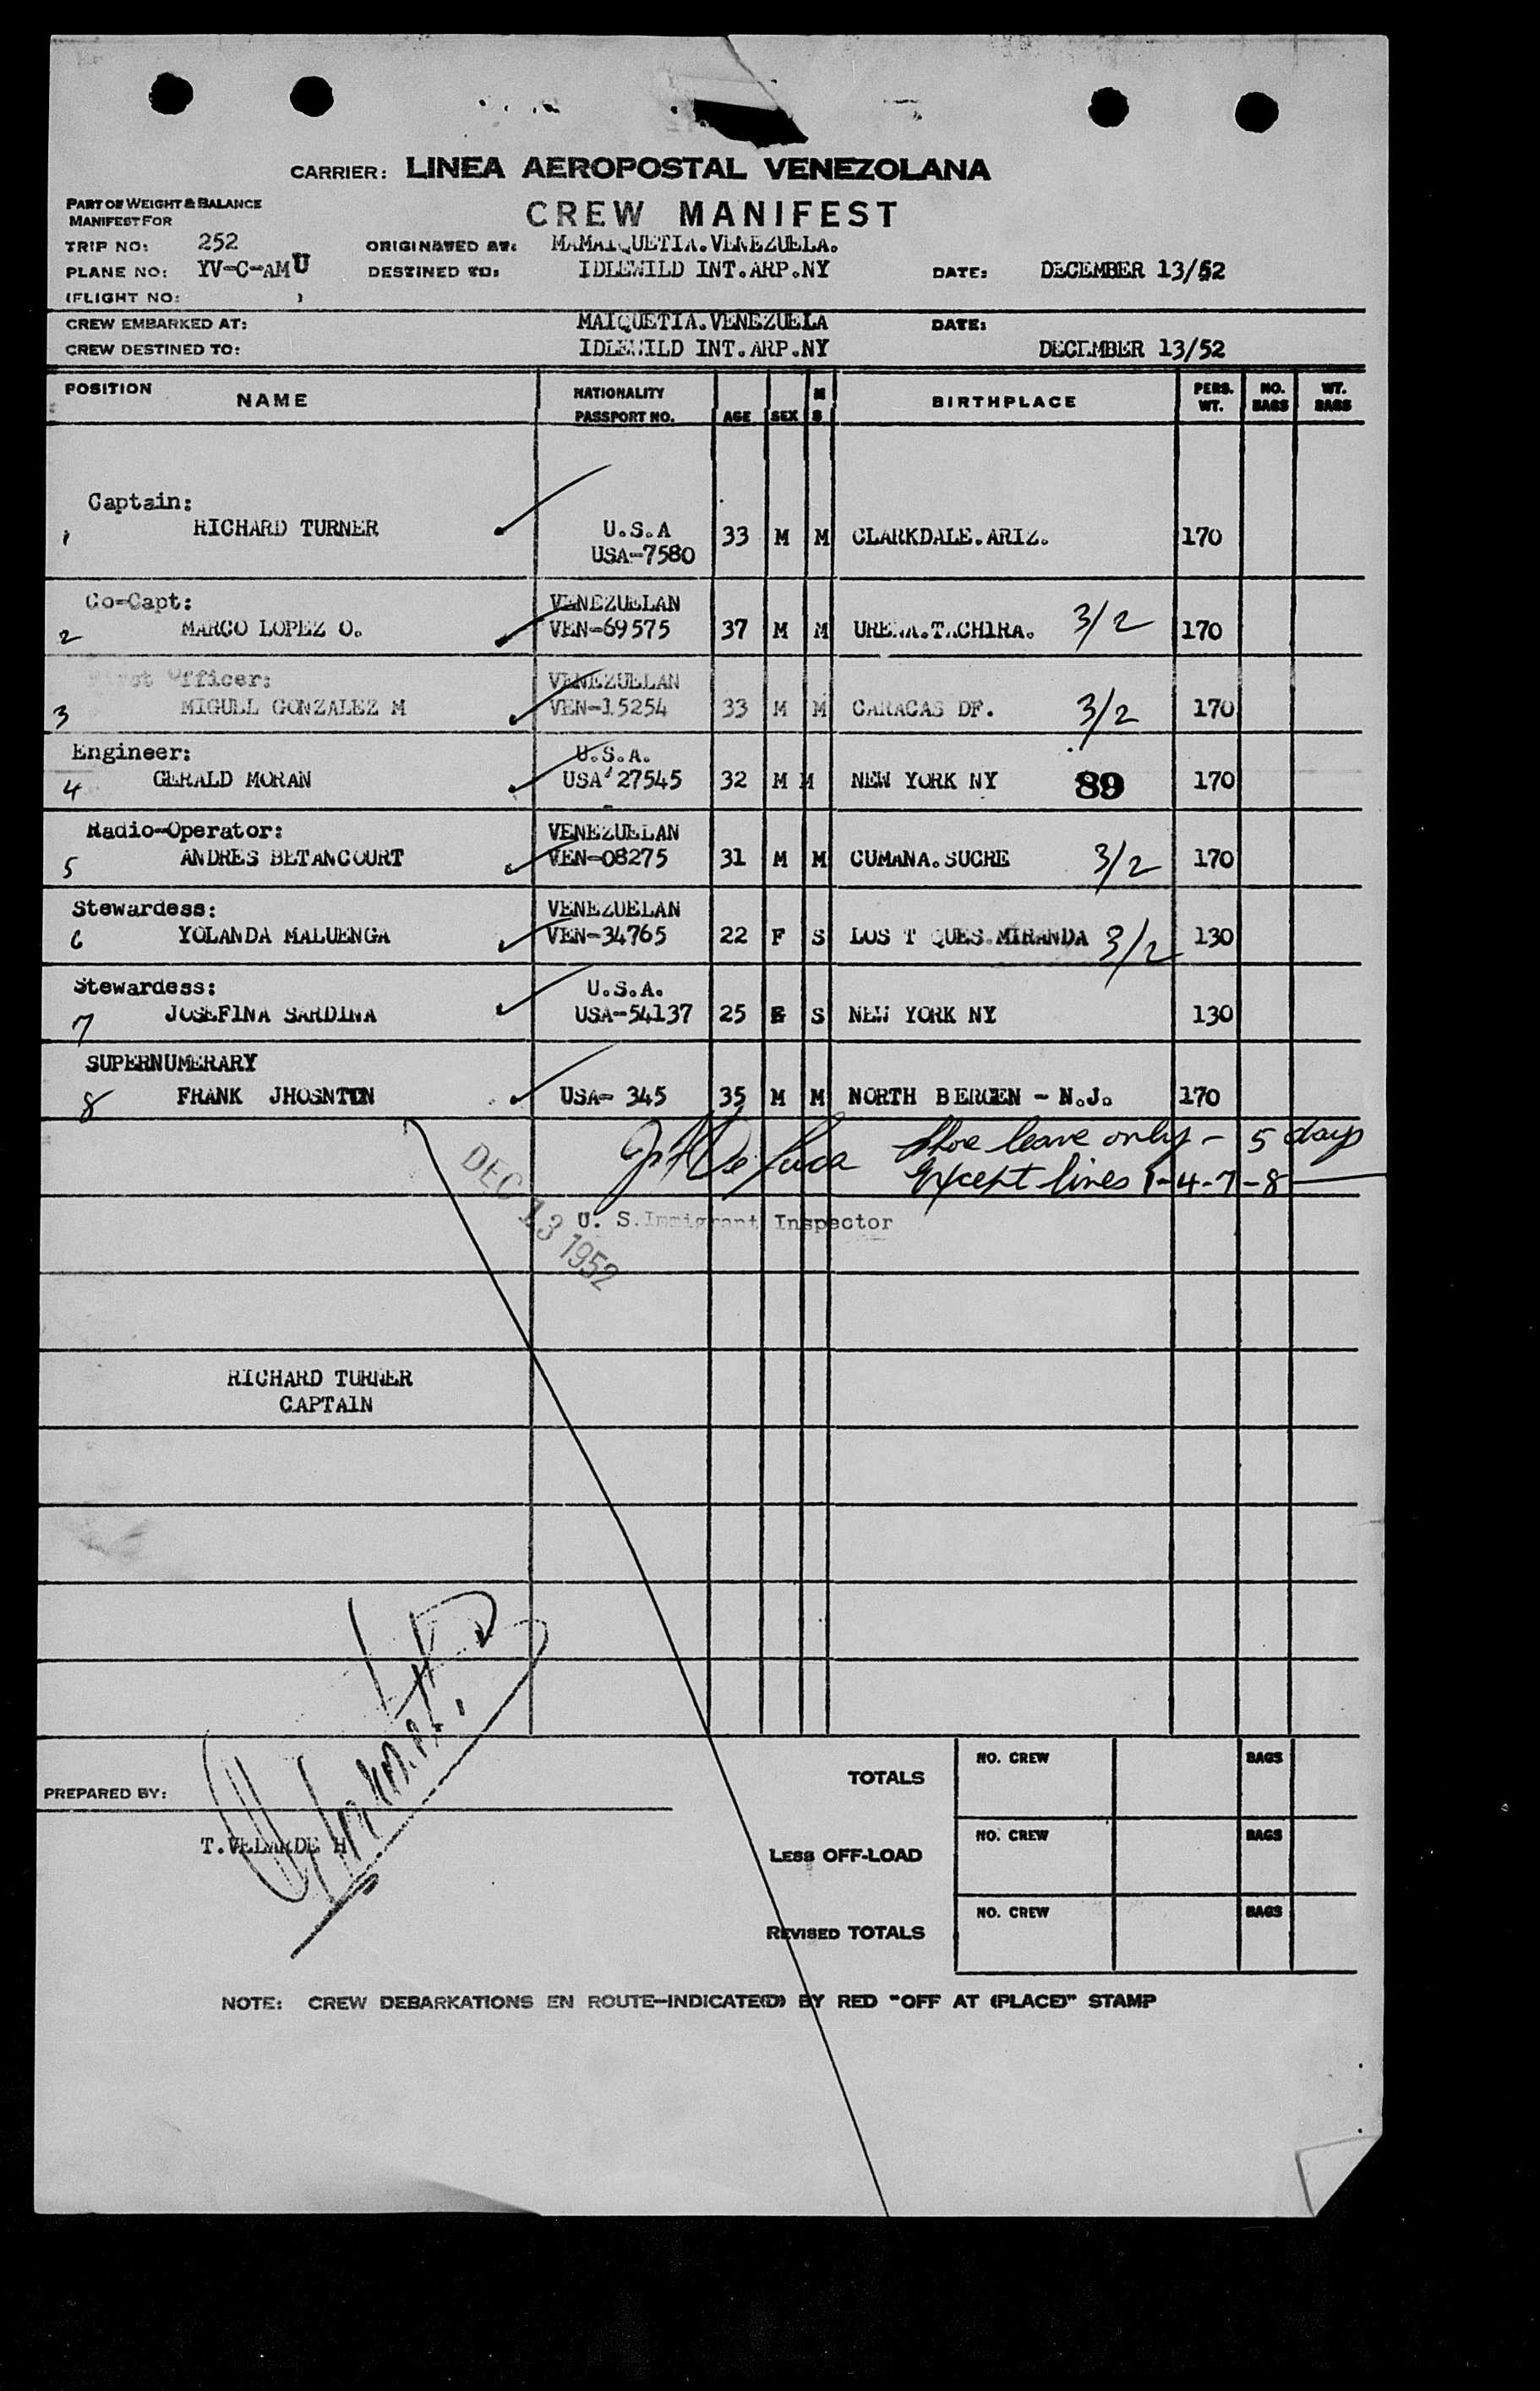 CARRIER: LINEA AEROPOSTAL VENEZOLANA
PART OF WEIGHT & BALANCE
MANIFEST FOR
CREW MANIFEST
TRIP NO: 252 ORIGINATED AT: MAMAIQUETIA.VENEZUELA.
PLANE NO: YV-C-AMU DESTINED TO: IDLEWILD INT.ARP.NY DATE: DECEMBER 13/52
(FLIGHT NO: )
CREW EMBARKED AT: MAIQUETIA.VENEZUELA DATE:
CREW DESTINED TO: IDLEWILD INT.ARP.NY DECEMBER 13/52
POSITION NAME NATIONALITY PASSPORT NO. AGE SEX M S BIRTHPLACE PERS. WT. NO. BAGS WT. BAGS
Captain:
1 RICHARD TURNER U.S.A 33 M M CLARKDALE.ARIZ. 170
USA-7580
Co-Capt: VENEZUELAN
2 MARCO LOPEZ O. VEN-69575 37 M M URENA.TACHIRA. 3/2 170
First Officer: VENEZUELAN
3 MIGUEL GONZALEZ M VEN-15254 33 M M CARACAS DF. 3/2 170
Engineer: U.S.A.
4 GERALD MORAN USA-27545 32 M M NEW YORK NY 89 170
Radio-Operator: VENEZUELAN
5 ANDRES BETANCOURT VEN-08275 31 M M CUMANA.SUCRE 3/2 170
Stewardess: VENEZUELAN
6 YOLANDA MALUENGA VEN-34765 22 F S LOS T QUES.MIRANDA 3/2 130
Stewardess: U.S.A.
7 JOSEFINA SARDINA USA-54137 25 F S NEW YORK NY 130
SUPERNUMERARY
8 FRANK JHOSNTON USA- 345 35 M M NORTH BERGEN - N.J. 170
Shore leave only - 5 days
Except lines 1-4-7-8
U. S. Immigrant Inspector
DEC 13 1952
RICHARD TURNER
CAPTAIN
TOTALS NO. CREW BAGS
PREPARED BY:
T.VELARDE H
LESS OFF-LOAD NO. CREW BAGS
REVISED TOTALS NO. CREW BAGS
NOTE: CREW DEBARKATIONS EN ROUTE-INDICATE(D) BY RED "OFF AT (PLACE)" STAMP